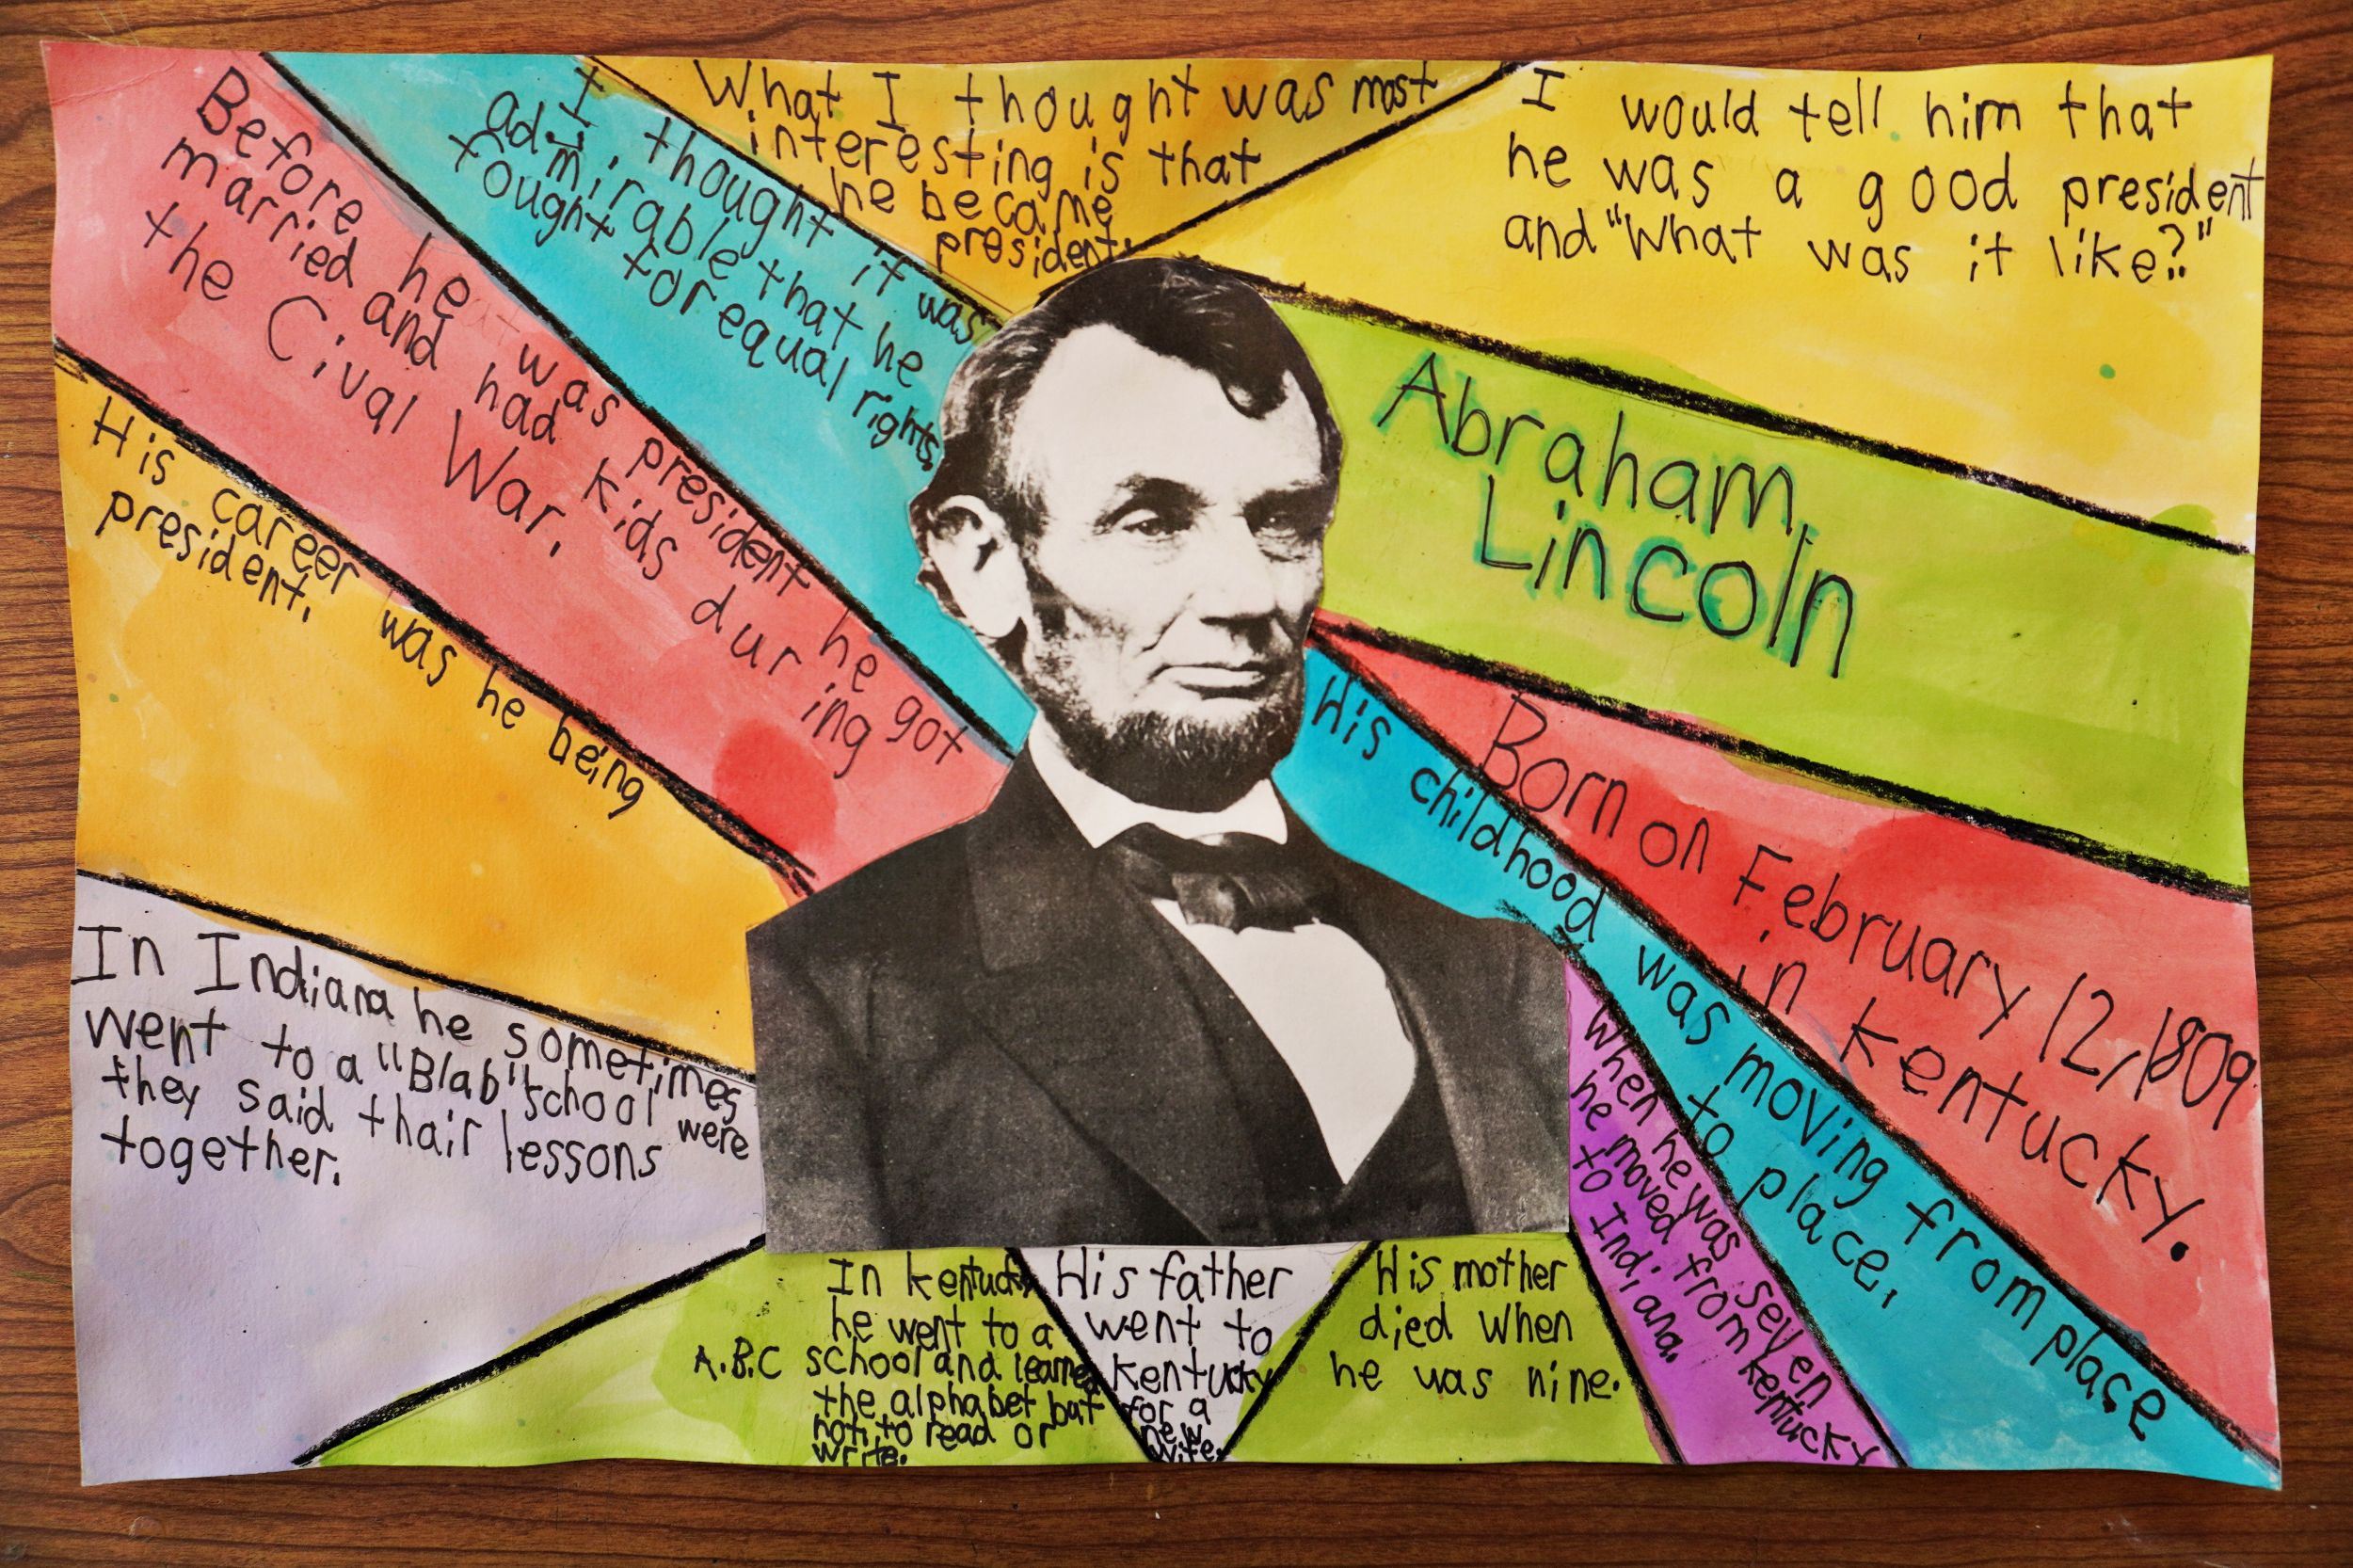 Abraham
Lincoln
Born on February 12, 1809
in Kentucky.
His childhood was moving from place
to place.
When he was seven
he moved from Kentucky
to Indiana.
His mother
died when
he was nine.
His father
went to
Kentucky
for a
new
wife.
In Kentucky
he went to a
A.B.C school and learned
the alphabet but
not to read or
write.
In Indiana he sometimes
went to a "Blab" school were
they said thair lessons
together.
His career was he being
president.
Before he was president he got
married and had kids during
the Cival War.
I thought it was
admirable that he
fought for equal rights.
What I thought was most
interesting is that
he became
president.
I would tell him that
he was a good president
and "What was it like?"